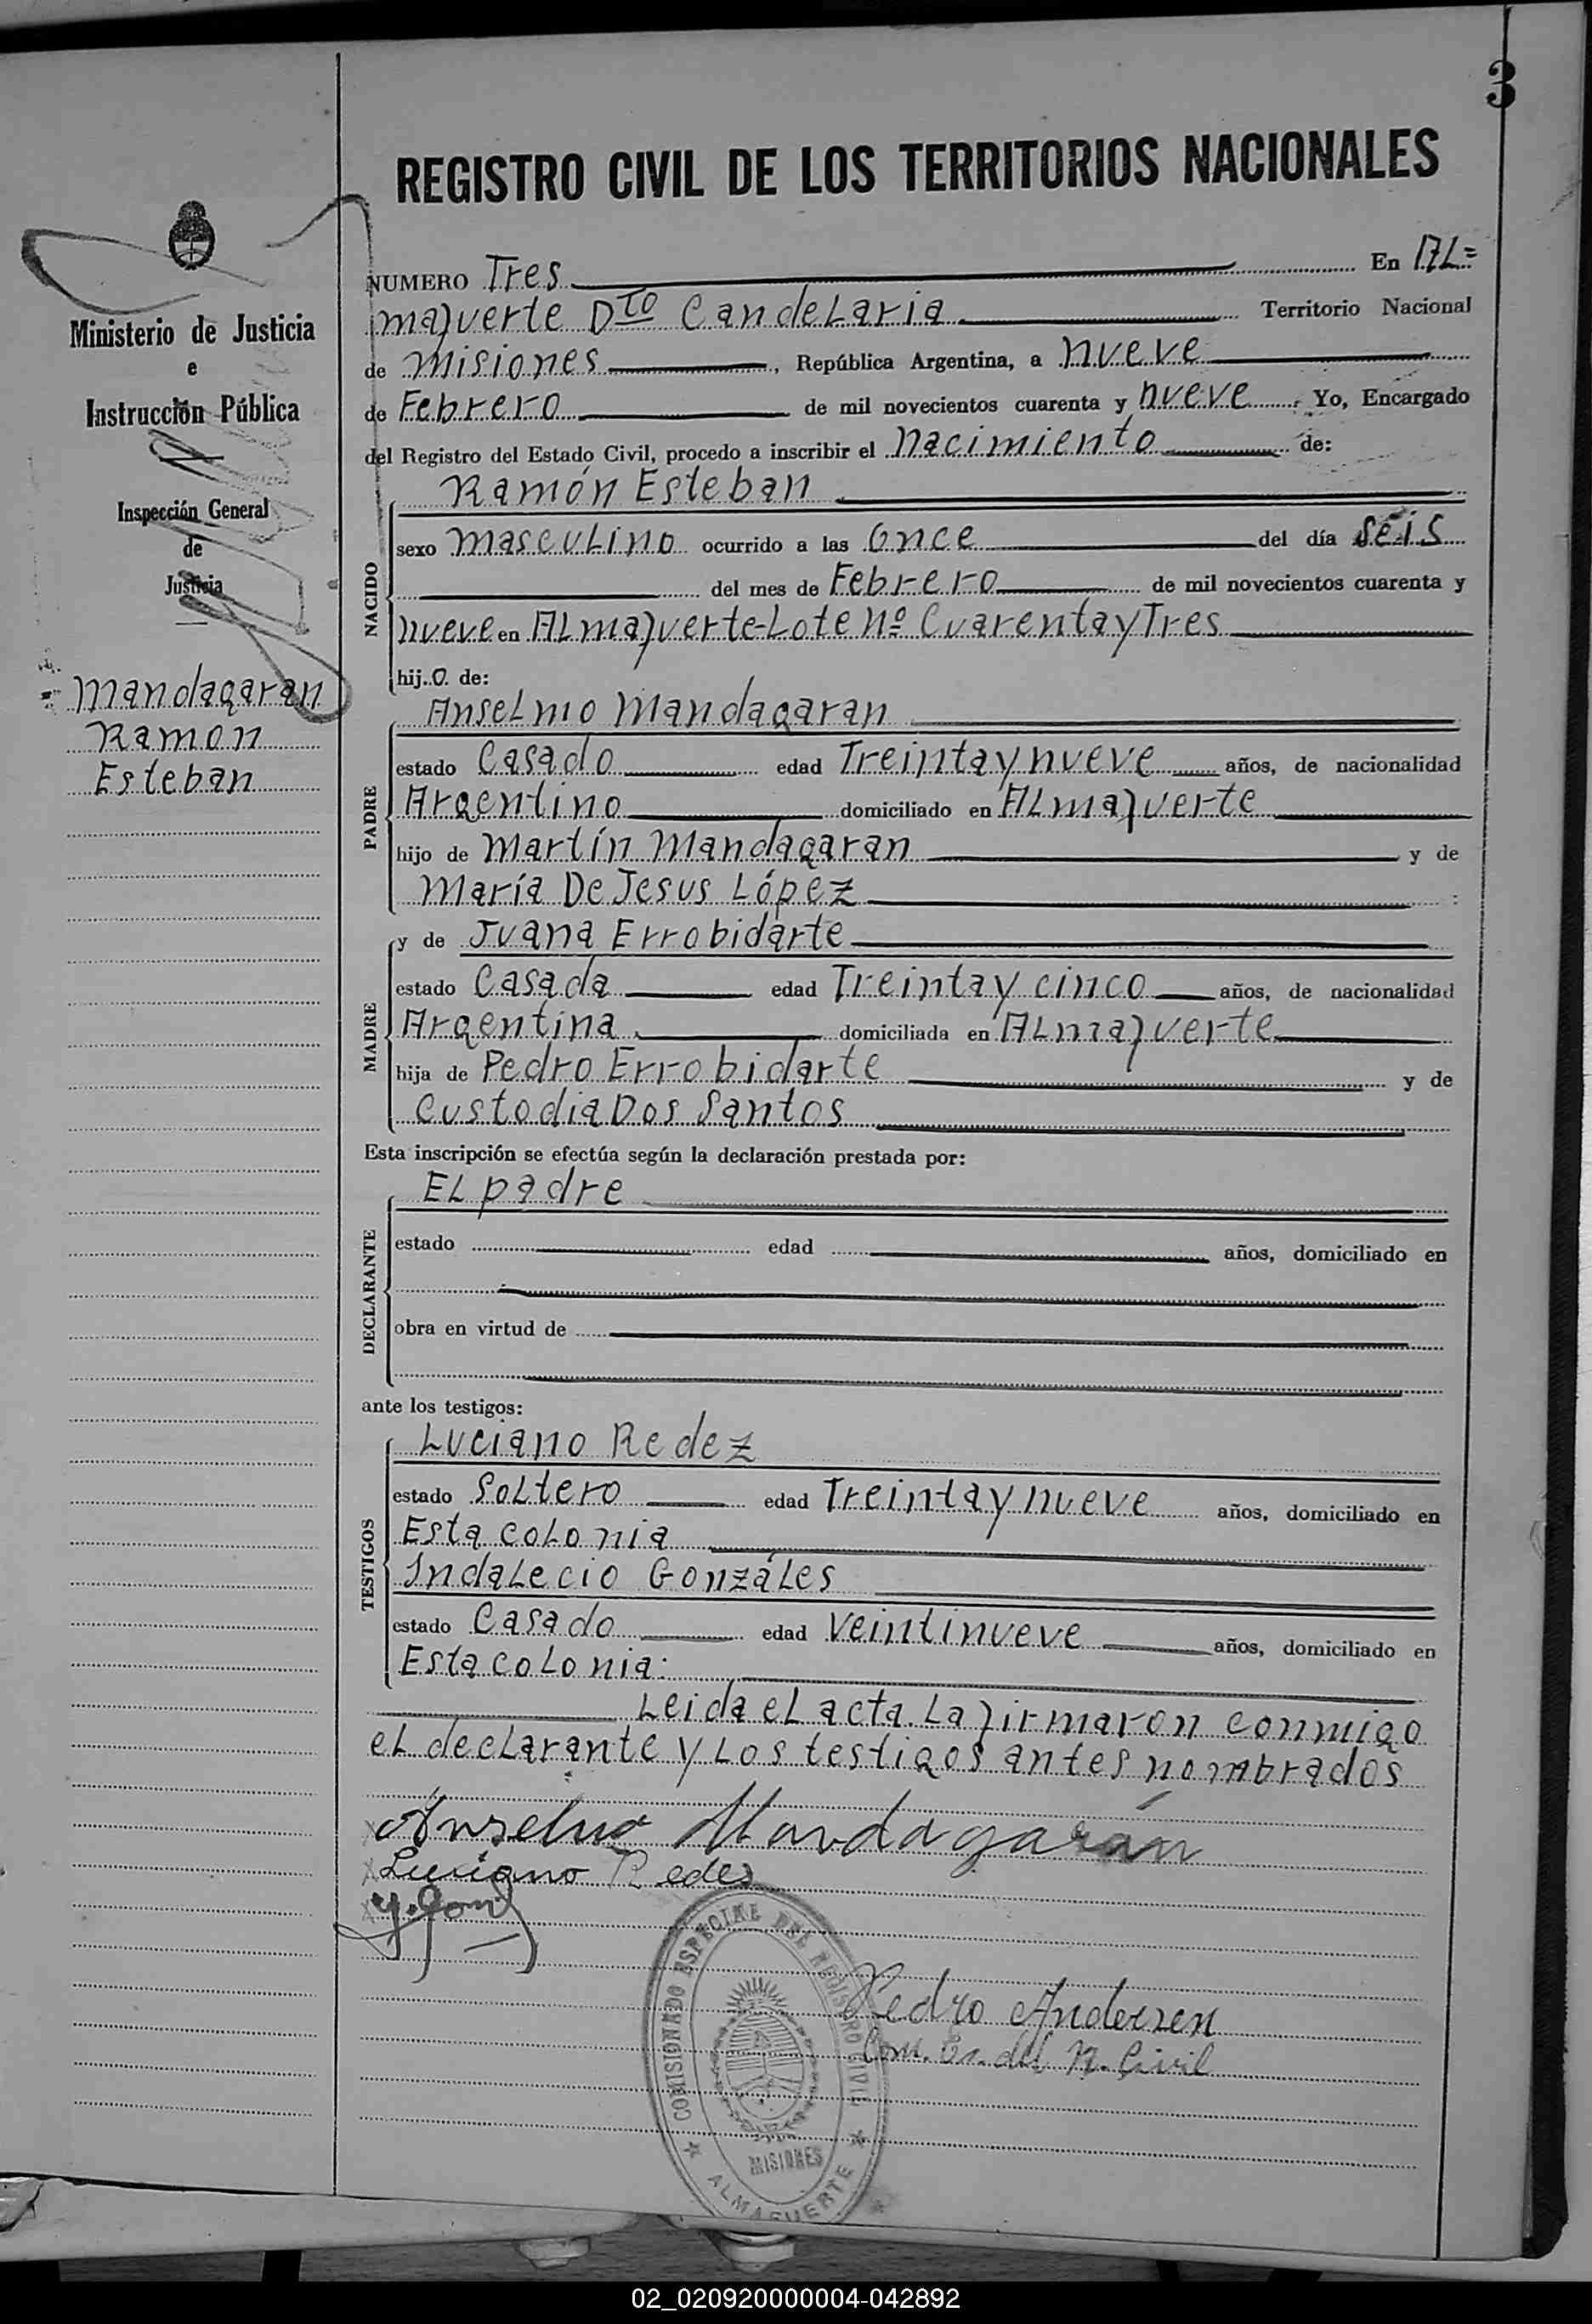 3
REGISTRO CIVIL DE LOS TERRITORIOS NACIONALES
Ministerio de Justicia
e
Instrucción Pública
Inspección General
de
Justicia
Mandagaran
Ramon
Esteban
NUMERO Tres En AL=
mafuerte Dto Candelaria Territorio Nacional
de Misiones, República Argentina, a nueve
de Febrero de mil novecientos cuarenta y nueve. Yo, Encargado
del Registro del Estado Civil, procedo a inscribir el nacimiento de:
NACIDO
Ramón Esteban
sexo masculino ocurrido a las once del día seis
del mes de Febrero de mil novecientos cuarenta y
nueve en Almafuerte-Lote nº Cuarenta y Tres
hij.o. de:
PADRE
Anselmo Mandagaran
estado Casado edad Treinta y nueve años, de nacionalidad
Argentino domiciliado en Almafuerte
hijo de Martín Mandagaran y de
María De Jesus López
MADRE
y de Juana Errobidarte
estado Casada edad Treinta y cinco años, de nacionalidad
Argentina domiciliada en Almafuerte
hija de Pedro Errobidarte y de
Custodia Dos Santos
Esta inscripción se efectúa según la declaración prestada por:
DECLARANTE
El padre
estado edad años, domiciliado en
obra en virtud de
ante los testigos:
TESTIGOS
Luciano Redez
estado Soltero edad Treinta y nueve años, domiciliado en
Esta colonia
Indalecio Gonzáles
estado Casado edad veintinueve años, domiciliado en
Esta colonia:
Leida el acta La firmaron conmigo
el declarante y los testigos antes nombrados
Anselmo Mandagarán
Luciano Redez
Y. Gonz
Pedro Andersen
Com. Es. del R. Civil
COMISIONADO ESPECIAL DEL REGISTRO CIVIL
MISIONES
ALMAFUERTE
02_020920000004-042892